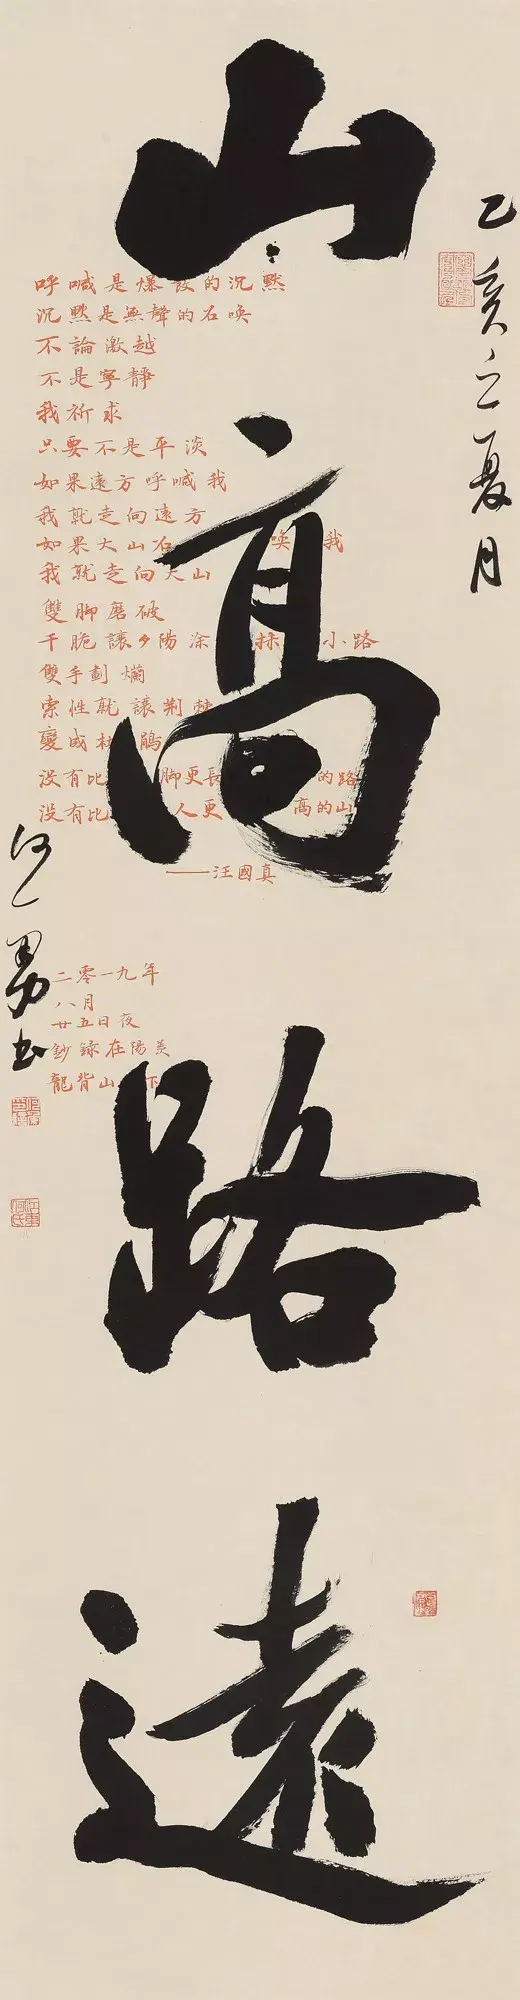 山高路遠
乙亥之夏月
呼喊是爆發的沉黙
沉黙是無聲的召喚
不論激越
還是寧靜
我祈求
只要不是平淡
如果遠方呼喊我
我就走向遠方
如果大山召喚我
我就走向大山
雙腳磨破
干脆讓夕陽涂抹小路
雙手劃爛
索性就讓荆棘
變成杜鵑
没有比腳更長的路
没有比人更高的山
——汪國真
二零一九年
八月
廿五日夜
鈔録在陽羨
龍背山下